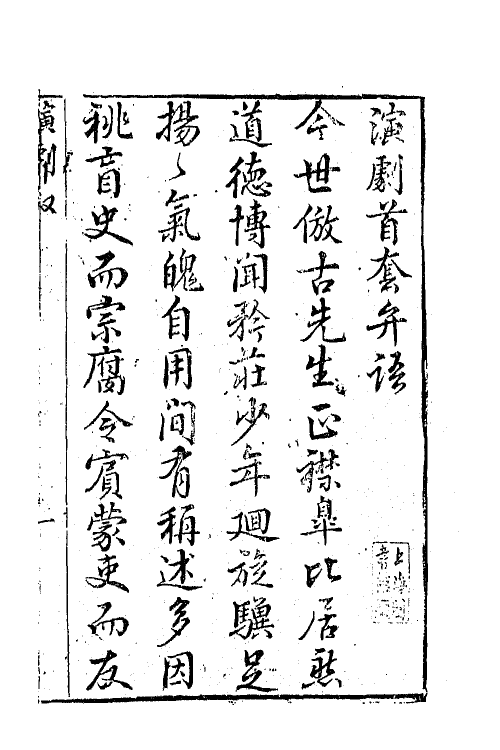 演劇首套弁語
今世倣古先生正襟皐比居然
道德博聞矜莊少年廻旋驥足
揚〻氣魄自用間有稱述多因
祧盲史而宗腐令賓蒙吏而友
演劇叙
一
上海